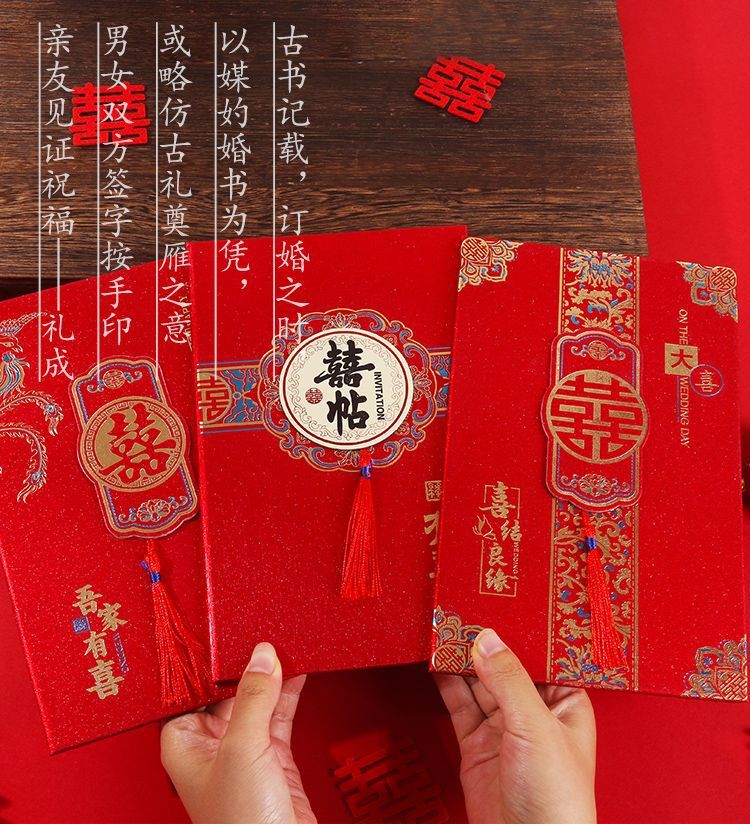 古书记载，订婚之时
以媒妁婚书为凭，
或略仿古礼奠雁之意
男女双方签字按手印
亲友见证祝福——礼成
囍
囍
囍
吾家有喜
囍帖
INVITATION
囍
ON THE
大喜
WEDDING DAY
喜结良缘
WEDDING
囍